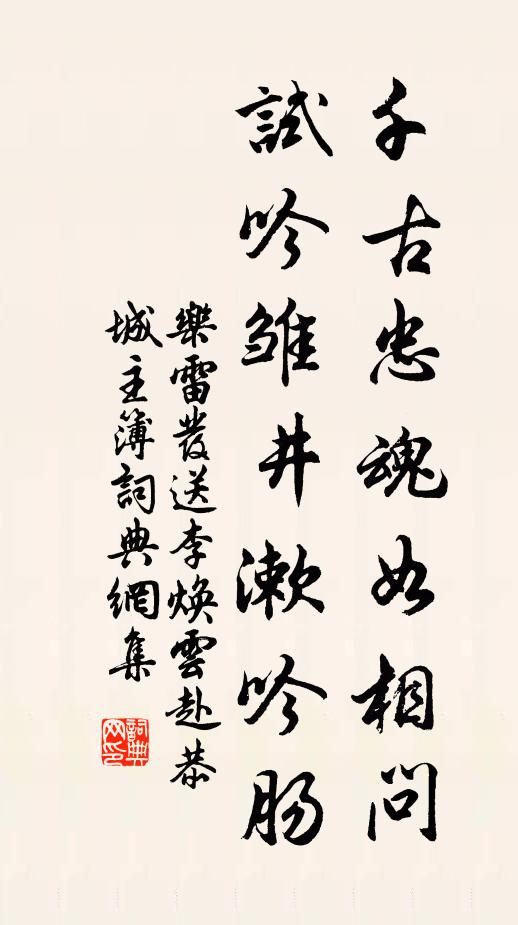 千古忠魂如相問
試吟雏井漱吟肠
樂雷發送李煥雲赴恭
城主簿詞典網集
詞典
网印